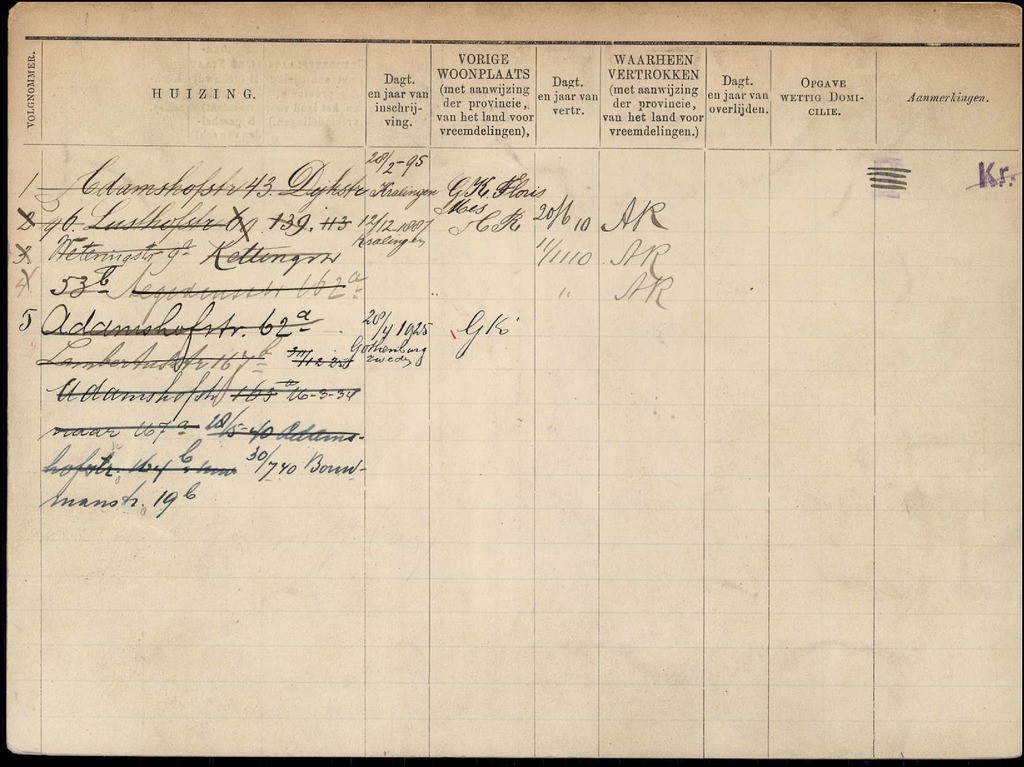 VOLGNOMMER.
HUIZING.
Dagt. en jaar van inschrijving.
VORIGE WOONPLAATS (met aanwijzing der provincie, van het land voor vreemdelingen),
Dagt. en jaar van vertr.
WAARHEEN VERTROKKEN (met aanwijzing der provincie, van het land voor vreemdelingen.)
Dagt. en jaar van overlijden.
OPGAVE WETTIG DOMICILIE.
Aanmerkingen.
28/2-95
1 Adamshofstr 43. Dijkstr Kralingen G.K. Floris Kr.
Mes
2 96. Lusthofstr 139. 113 12/12 1887 20/6 10 AK
Kralingen
3 Weteringstr 9a 11/11 10 AK
4 53b 162a " AK
5 Adamshofstr. 62a 28/4 1925 GK
Lambertusstr 167b Gothenburg
zweden
Adamshofstr 165a 26-3-34
naar 167a 18/5-40 Adams-
hofstr. 164b 30/7 40 Bouw-
manstr. 19b